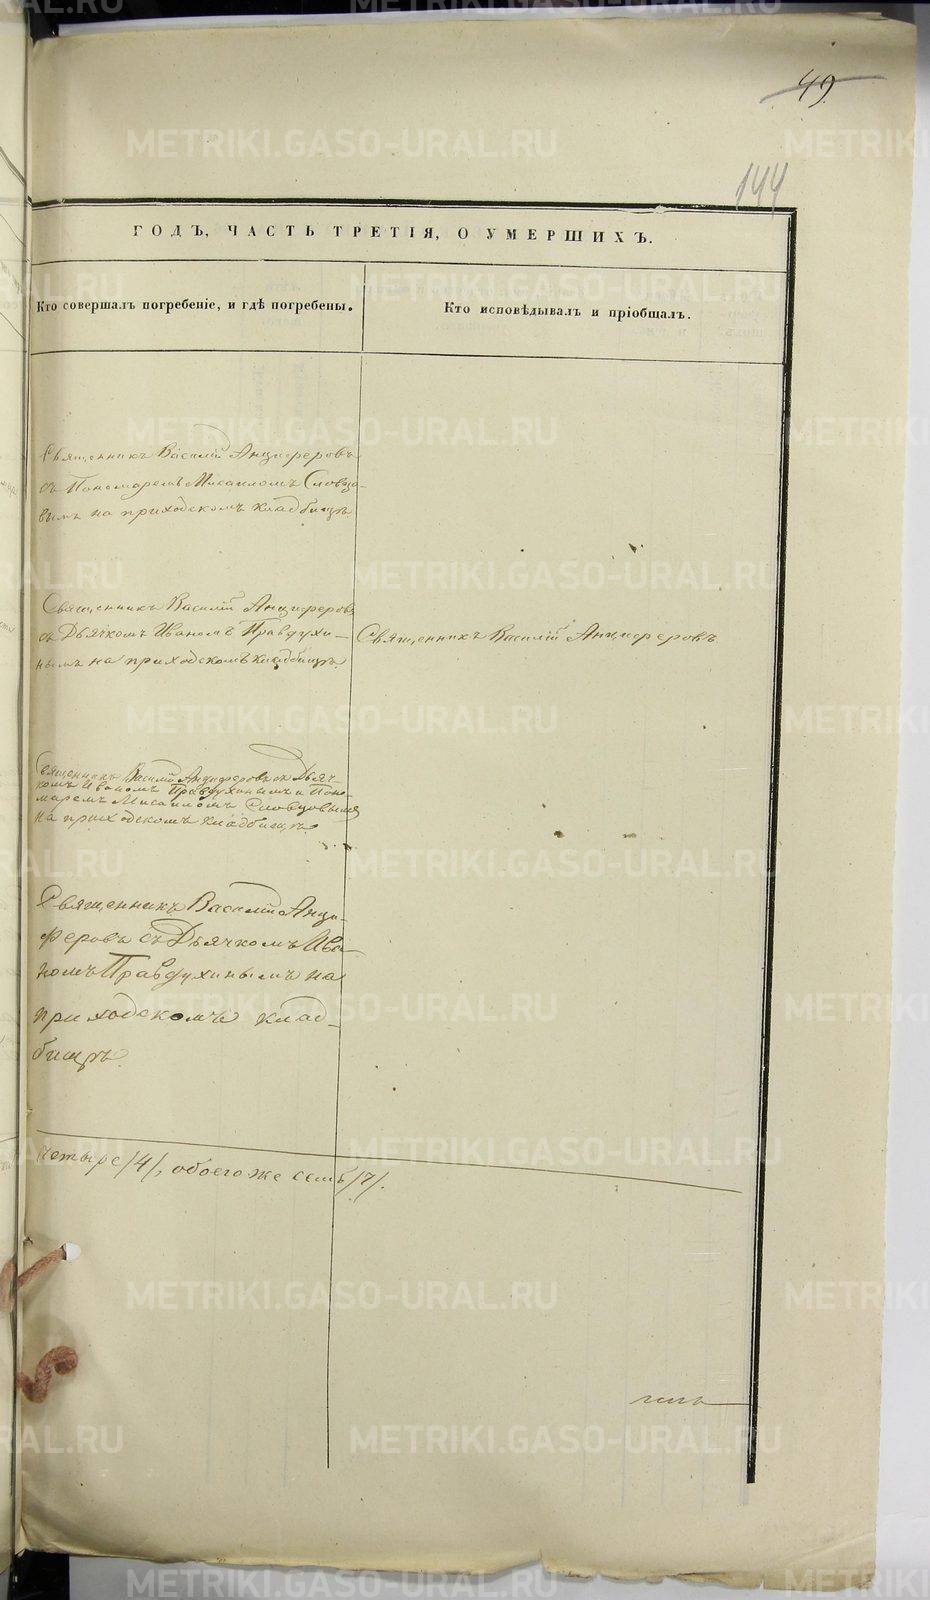 49
144
ГОДЪ, ЧАСТЬ ТРЕТІЯ, О УМЕРШИХЪ.
Кто совершалъ погребеніе, и гдѣ погребены.
Кто исповѣдывалъ и пріобщалъ.
Священникъ Василій Анциферовъ
съ Пономаремъ Мисаиломъ Словцо-
вымъ на приходскомъ кладбищѣ
Священникъ Василій Анциферовъ
съ Дьячкомъ Иваномъ Правдухи-
нымъ на приходскомъ кладбищѣ.
Священникъ Василій Анциферовъ
Священникъ Василій Анциферовъ съ Дьяч-
комъ Иваномъ Правдухинымъ и Поно-
маремъ Мисаиломъ Словцовымъ
на приходскомъ кладбищѣ.
Священникъ Василій Анци-
феровъ съ Дьячкомъ Ива-
номъ Правдухинымъ на
приходскомъ клад-
бищѣ.
четыре /4/, обоего же семь /7/.
METRIKI.GASO-URAL.RU